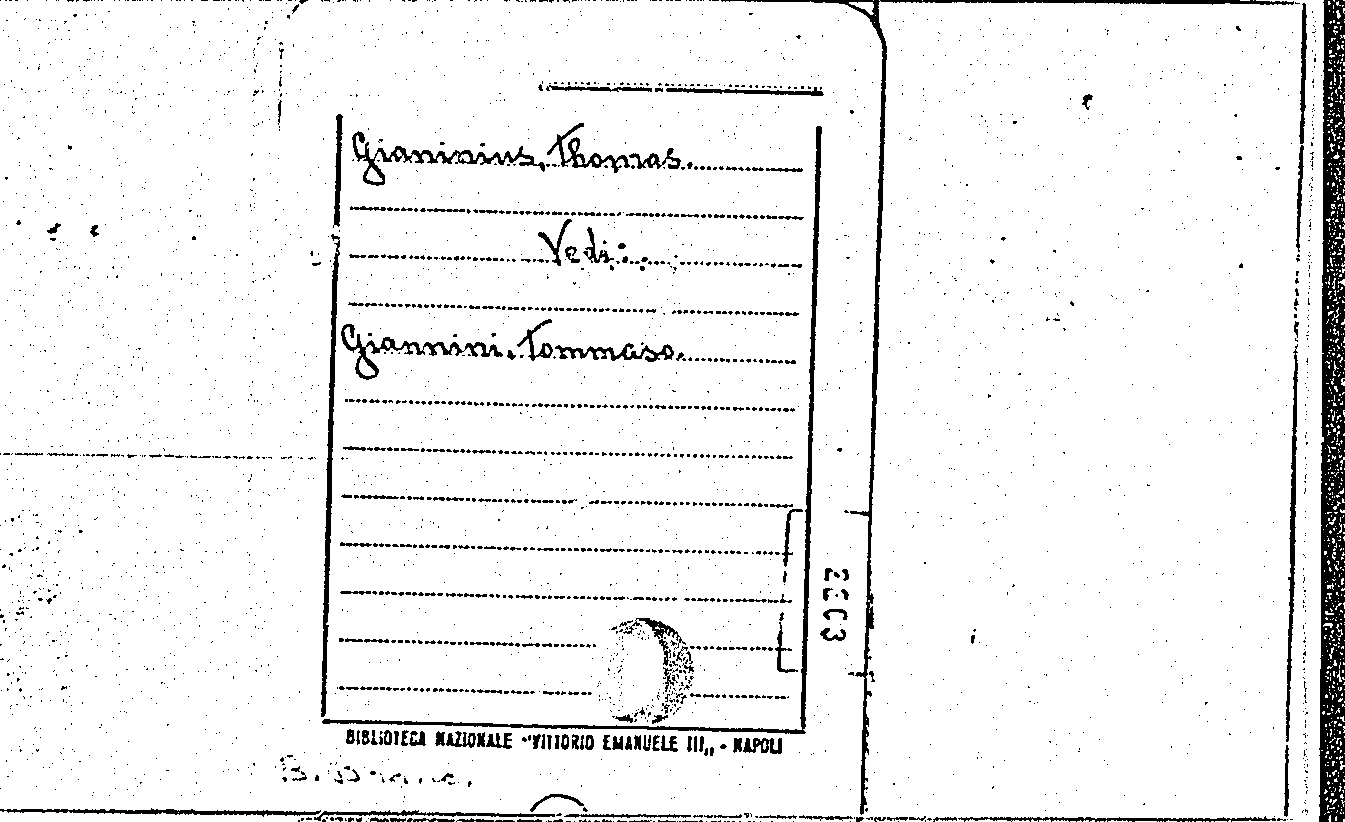 Gianinius, Thomas.
Vedi:
Giannini, Tommaso.
BIBLIOTECA NAZIONALE "VITTORIO EMANUELE III„ - NAPOLI